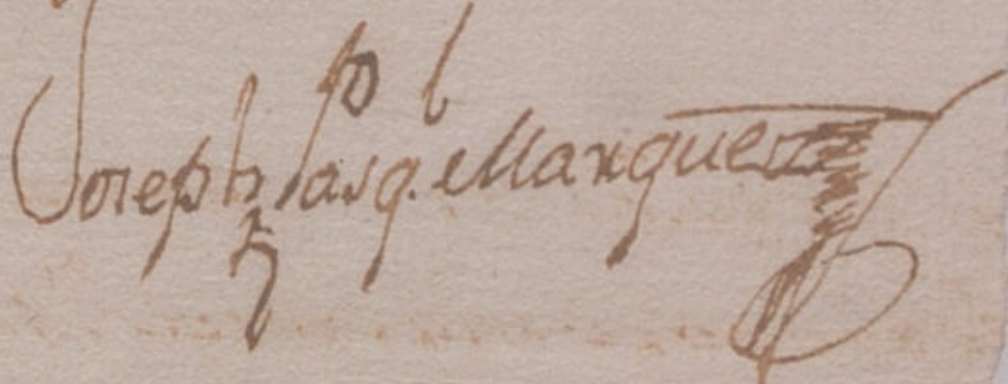 Joseph Pasq.l Marquez